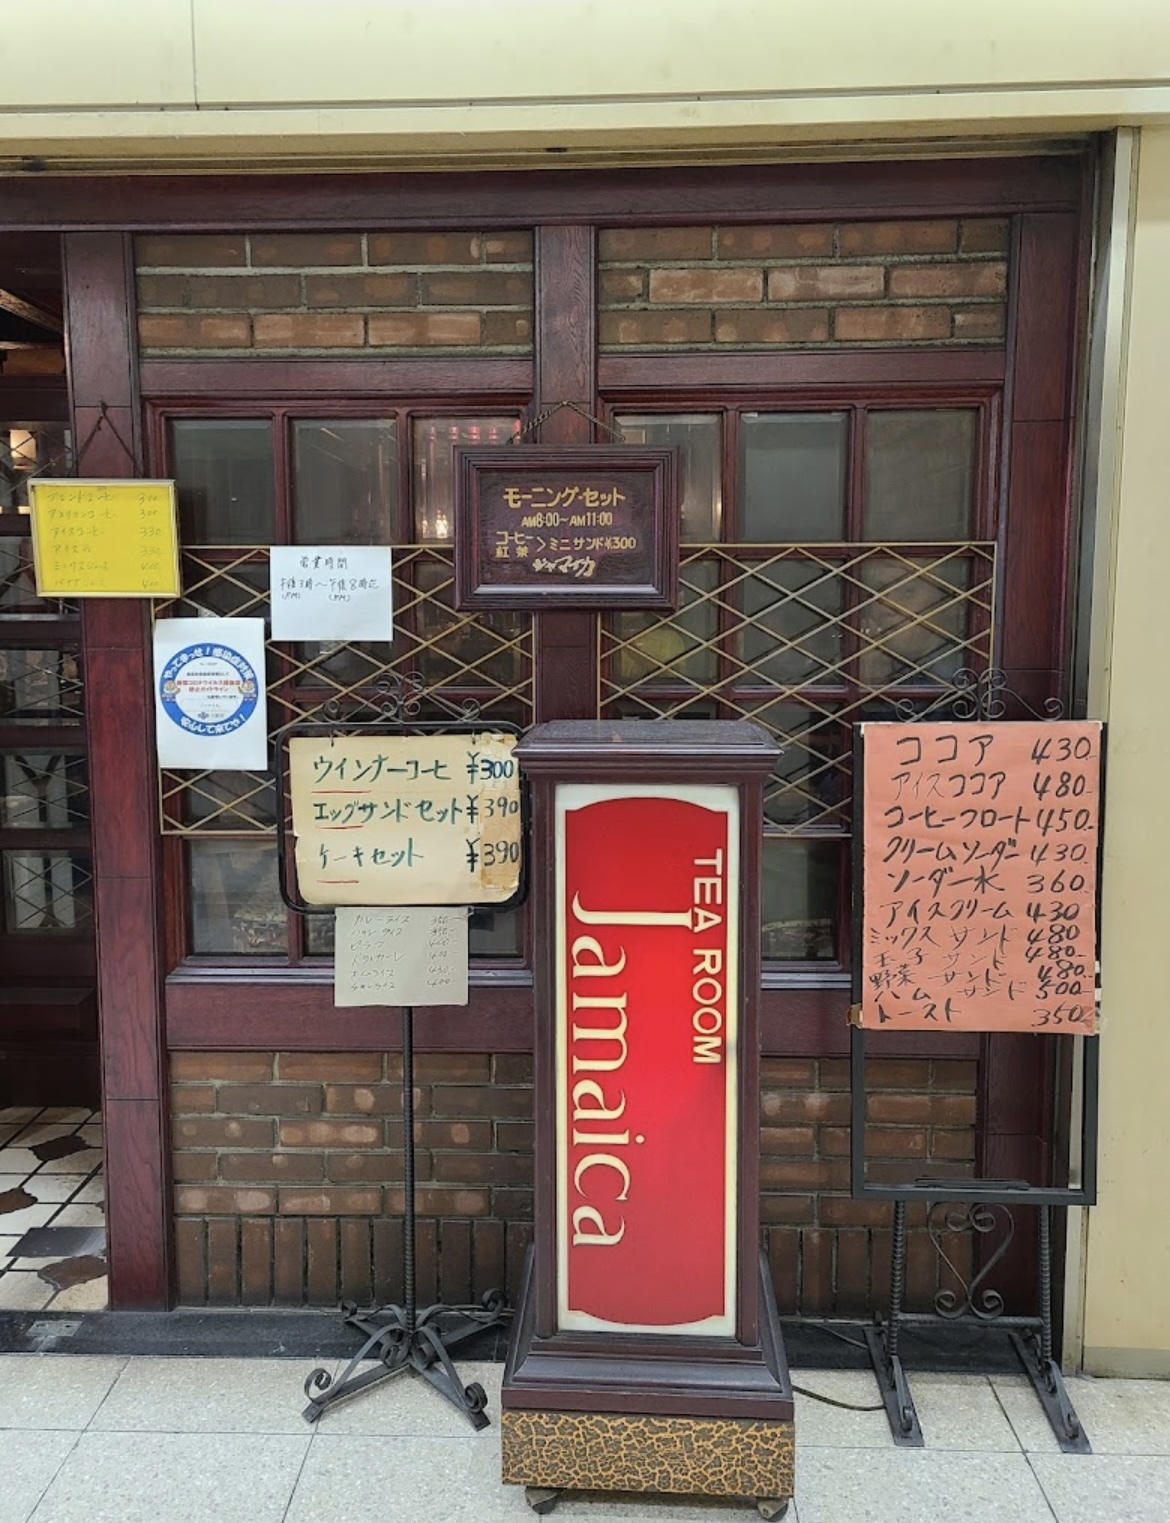 モーニング・セット
AM8:00～AM11:00
コーヒー
紅茶
＞ミニサンド¥300
ジャマイカ
ブレンドコーヒー 300
アメリカンコーヒー 300
アイスコーヒー 330
アイスティ 330
ミックスジュース 400
400
営業時間
午後3時～午後8時迄
(PM) (PM)
やってまっせ！感染症対策
新型コロナウイルス感染症
安心して来てや！
ウインナーコーヒ ¥300
エッグサンドセット ¥390
ケーキセット ¥390
カレーライス
ハヤシライス
ピラフ
ドライカレー
オムライス
チキンライス
TEA ROOM
Jamaica
ココア 430
アイスココア 480
コーヒーフロート 450
クリームソーダー 430
ソーダー水 360
アイスクリーム 430
ミックスサンド 480
玉子サンド 480
野菜サンド 480
ハムサンド 500
トースト 350